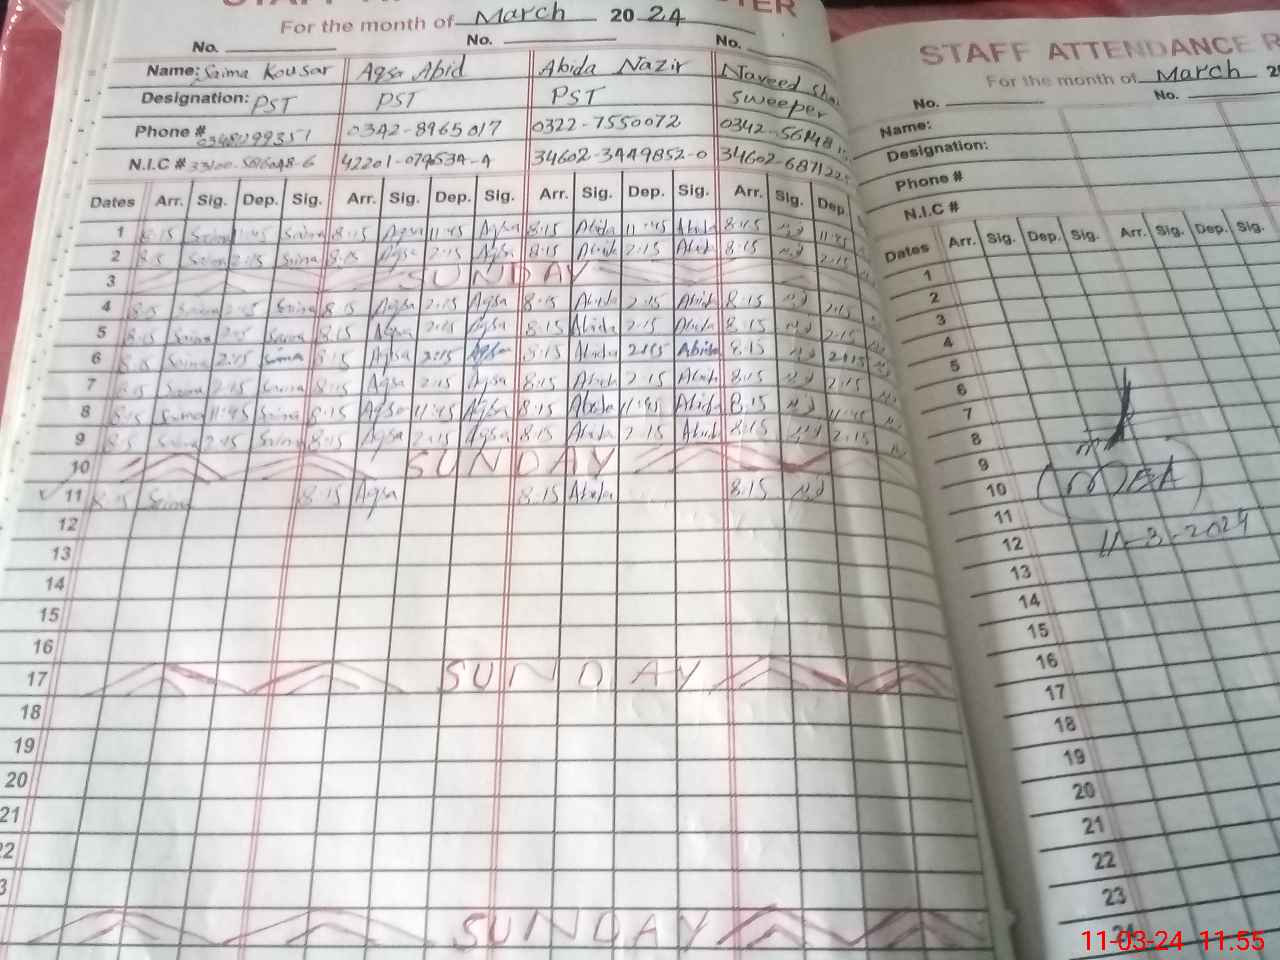 For the month of March 2024
No. No. No.
Name: Saima Kousar Aqsa Abid Abida Nazir Naveed
Designation: PST PST PST Sweeper
Phone # 0342-8965017 0322-7550072
N.I.C # 34602-3449852-0
Dates Arr. Sig. Dep. Sig. Arr. Sig. Dep. Sig. Arr. Sig. Dep. Sig. Arr. Sig. Dep.
1 8:15 Saima Saima 8:15 Aqsa 11:45 Aqsa 8:15 Abida 11:45 Abida 8:15 11:45
2 8:15 Saima 2:15 Saima 8:15 Aqsa 2:15 Aqsa 8:15 Abida 2:15 Abida 8:15 2:15
3 SUNDAY
4 8:15 Saima 2:15 Saima 8:15 Aqsa 2:15 Aqsa 8:15 Abida 2:15 Abida 8:15 2:15
5 8:15 Saima 2:15 Saima 8:15 Aqsa 2:15 Aqsa 8:15 Abida 2:15 Abida 8:15 2:15
6 8:15 Saima 2:15 Saima 8:15 Aqsa 2:15 Aqsa 8:15 Abida 2:15 Abida 8:15 2:15
7 8:15 Saima 2:15 Saima 8:15 Aqsa 2:15 Aqsa 8:15 Abida 2:15 Abida 8:15 2:15
8 8:15 Saima 11:45 Saima 8:15 Aqsa 11:45 Aqsa 8:15 Abida 11:45 Abida 8:15 11:45
9 8:15 Saima 2:15 Saima 8:15 Aqsa 2:15 Aqsa 8:15 Abida 2:15 Abida 8:15 2:15
10 SUNDAY
11 8:15 Saima 8:15 Aqsa 8:15 Abida 8:15
12
13
14
15
16
17 SUNDAY
18
19
20
21
22
23
SUNDAY
STAFF ATTENDANCE
For the month of March
No. No.
Name:
Designation:
Phone #
N.I.C #
Dates Arr. Sig. Dep. Sig. Arr. Sig. Dep. Sig.
1
2
3
4
5
6
7
8
9
10
11
12
13
14
15
16
17
18
19
20
21
22
23
24
(MEA)
11-3-2024
11-03-24 11.55